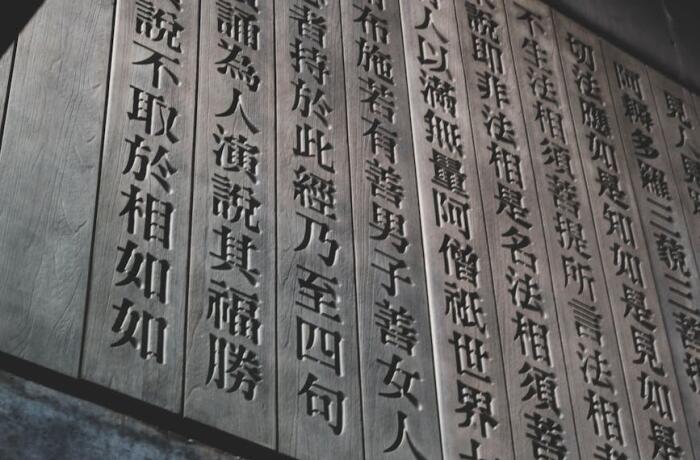 見人見
阿耨多羅三藐三菩
切法應如是知如是見如是
不生法相須菩提所言法相者
說即非法相是名法相須菩
人以滿無量阿僧祇世界
布施若有善男子善女人
者持於此經乃至四句
誦為人演說其福勝
說不取於相如如